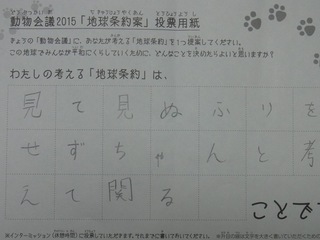 動物会議2015「地球条約案」投票用紙
きょうの「動物会議」に、あなたが考える「地球条約」を1つ提案してください。
この地球でみんなが平和にくらしていくために、どんなことを決めたらよいと思いますか?
わたしの考える「地球条約」は、
見て見ぬふりを
せずちゃんと考
えて関る
こと
※インターミッション(休憩時間)に投票していただきます。それまでに書いておいてください。